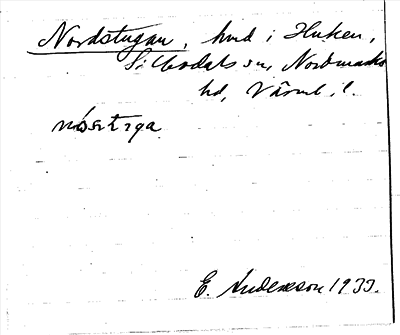 Nordstugan, hmd i Huken,
Silbodals sn, Nordmarks
hd, Värml. l.
nósƫꞅga
E. Andersson 1933.